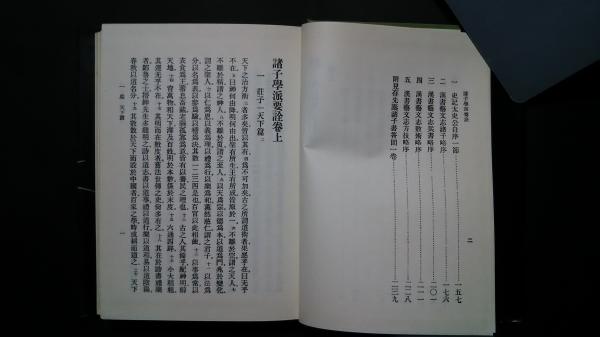 諸子學派要詮
二
一 史記太史公自序一節 一五七
二 漢書藝文志諸子略序 一七六
三 漢書藝文志兵書略序
四 漢書藝文志數術略序
五 漢書藝文志方技略序
附見存先秦諸子書答問一卷
諸子學派要詮卷上
一 莊子天下篇
天下之治方術者多矣皆以其有爲不可加矣古之所謂道術者果惡乎在曰无乎
不在曰神何由降明何由出聖有所生王有所成皆原於一不離於宗謂之天人
不離於精謂之神人不離於眞謂之至人以天爲宗以德爲本以道爲門兆於變化
謂之聖人以仁爲恩以義爲理以禮爲行以樂爲和薰然慈仁謂之君子以法爲
分以名爲表以參爲驗以稽爲決其數一二三四是也百官以此相齒以事爲常以
衣食爲主蕃息畜藏老弱孤寡爲意皆有以養民之理也古之人其備乎配神明醇
天地育萬物和天下澤及百姓明於本數係於末度六通四辟小大精粗
其運无乎不在其明而在數度者舊法世傳之史尚多有之其在於詩書禮樂
者鄒魯之士搢紳先生多能明之詩以道志書以道事禮以道行樂以道和易以道陰陽
春秋以道名分其數散於天下而設於中國者百家之學時或稱而道之天下
一 莊 天下篇
一